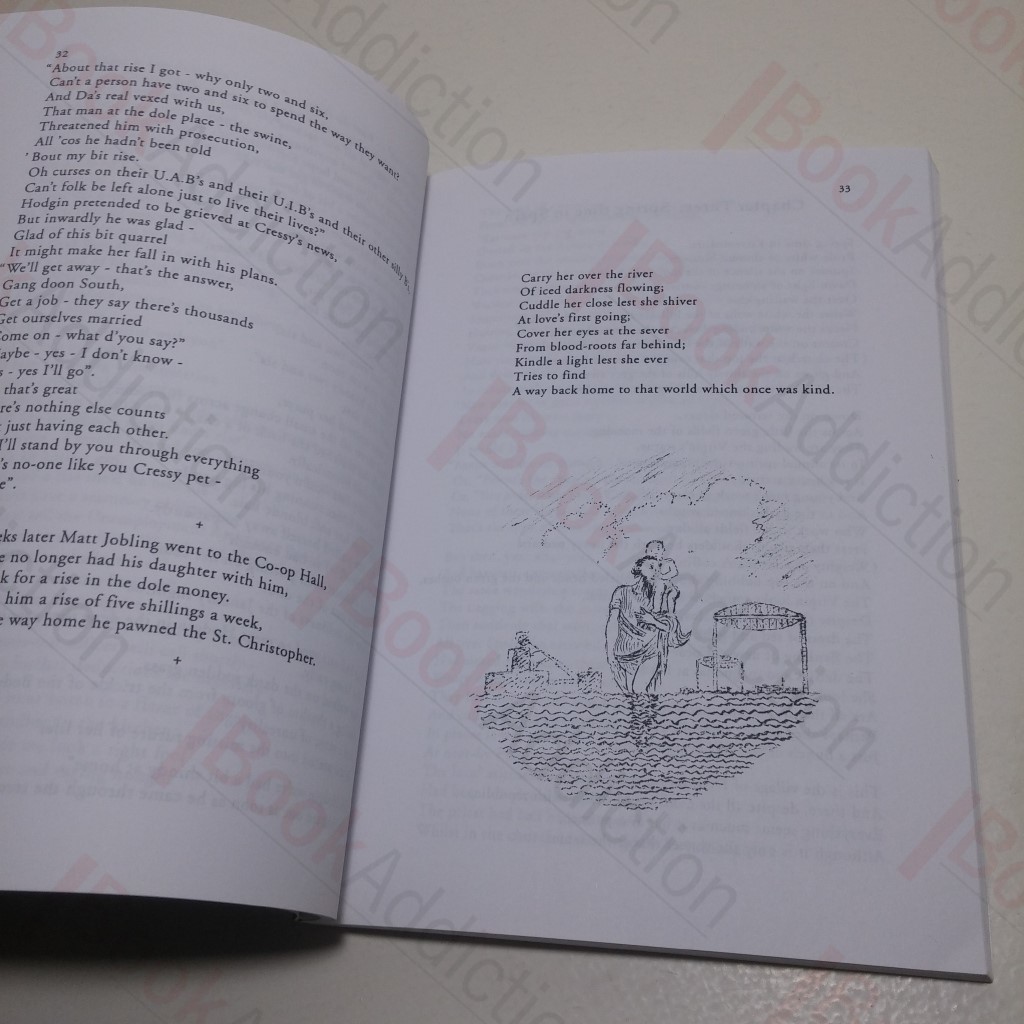 32
"About that rise I got - why only two and six.
Can't a person have two and six to spend the way they want?
And Da's real vexed with us,
That man at the dole place - the swine,
Threatened him with prosecution,
All 'cos he hadn't been told
'Bout my bit rise.
Oh curses on their U.A.B's and their U.I.B's and their other silly B's.
Can't folk be left alone just to live their lives?"
Hodgin pretended to be grieved at Cressy's news,
But inwardly he was glad -
Glad of this bit quarrel
It might make her fall in with his plans.
"We'll get away - that's the answer,
Gang doon South,
Get a job - they say there's thousands
Get ourselves married
ome on - what d'you say?"
aybe - yes - I don't know -
s - yes I'll go".
that's great
re's nothing else counts
just having each other.
I'll stand by you through everything
's no-one like you Cressy pet -
e".
+
ks later Matt Jobling went to the Co-op Hall,
e no longer had his daughter with him,
k for a rise in the dole money.
him a rise of five shillings a week,
e way home he pawned the St. Christopher.
+
33
Carry her over the river
Of iced darkness flowing;
Cuddle her close lest she shiver
At love's first going;
Cover her eyes at the sever
From blood-roots far behind;
Kindle a light lest she ever
Tries to find
A way back home to that world which once was kind.
BookAddiction